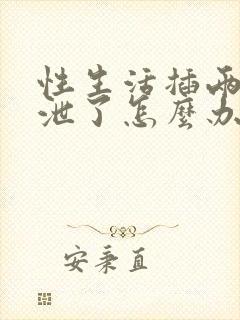 性生活插兩
泄了怎麼办
安秉直